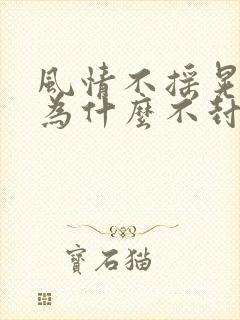 風情不搖晃
為什麼不封
寶石猫